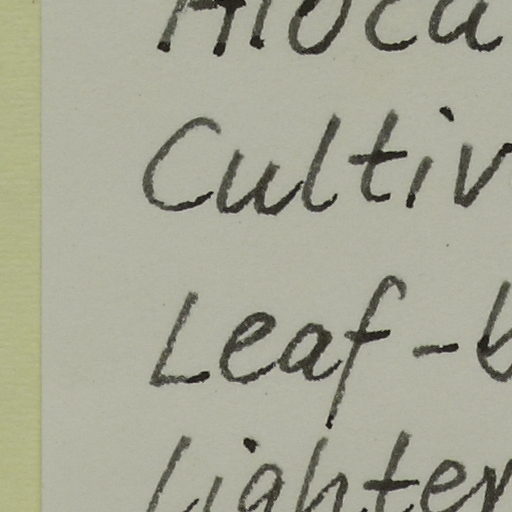 Aloca
Cultiv
Leaf-b
Lighter